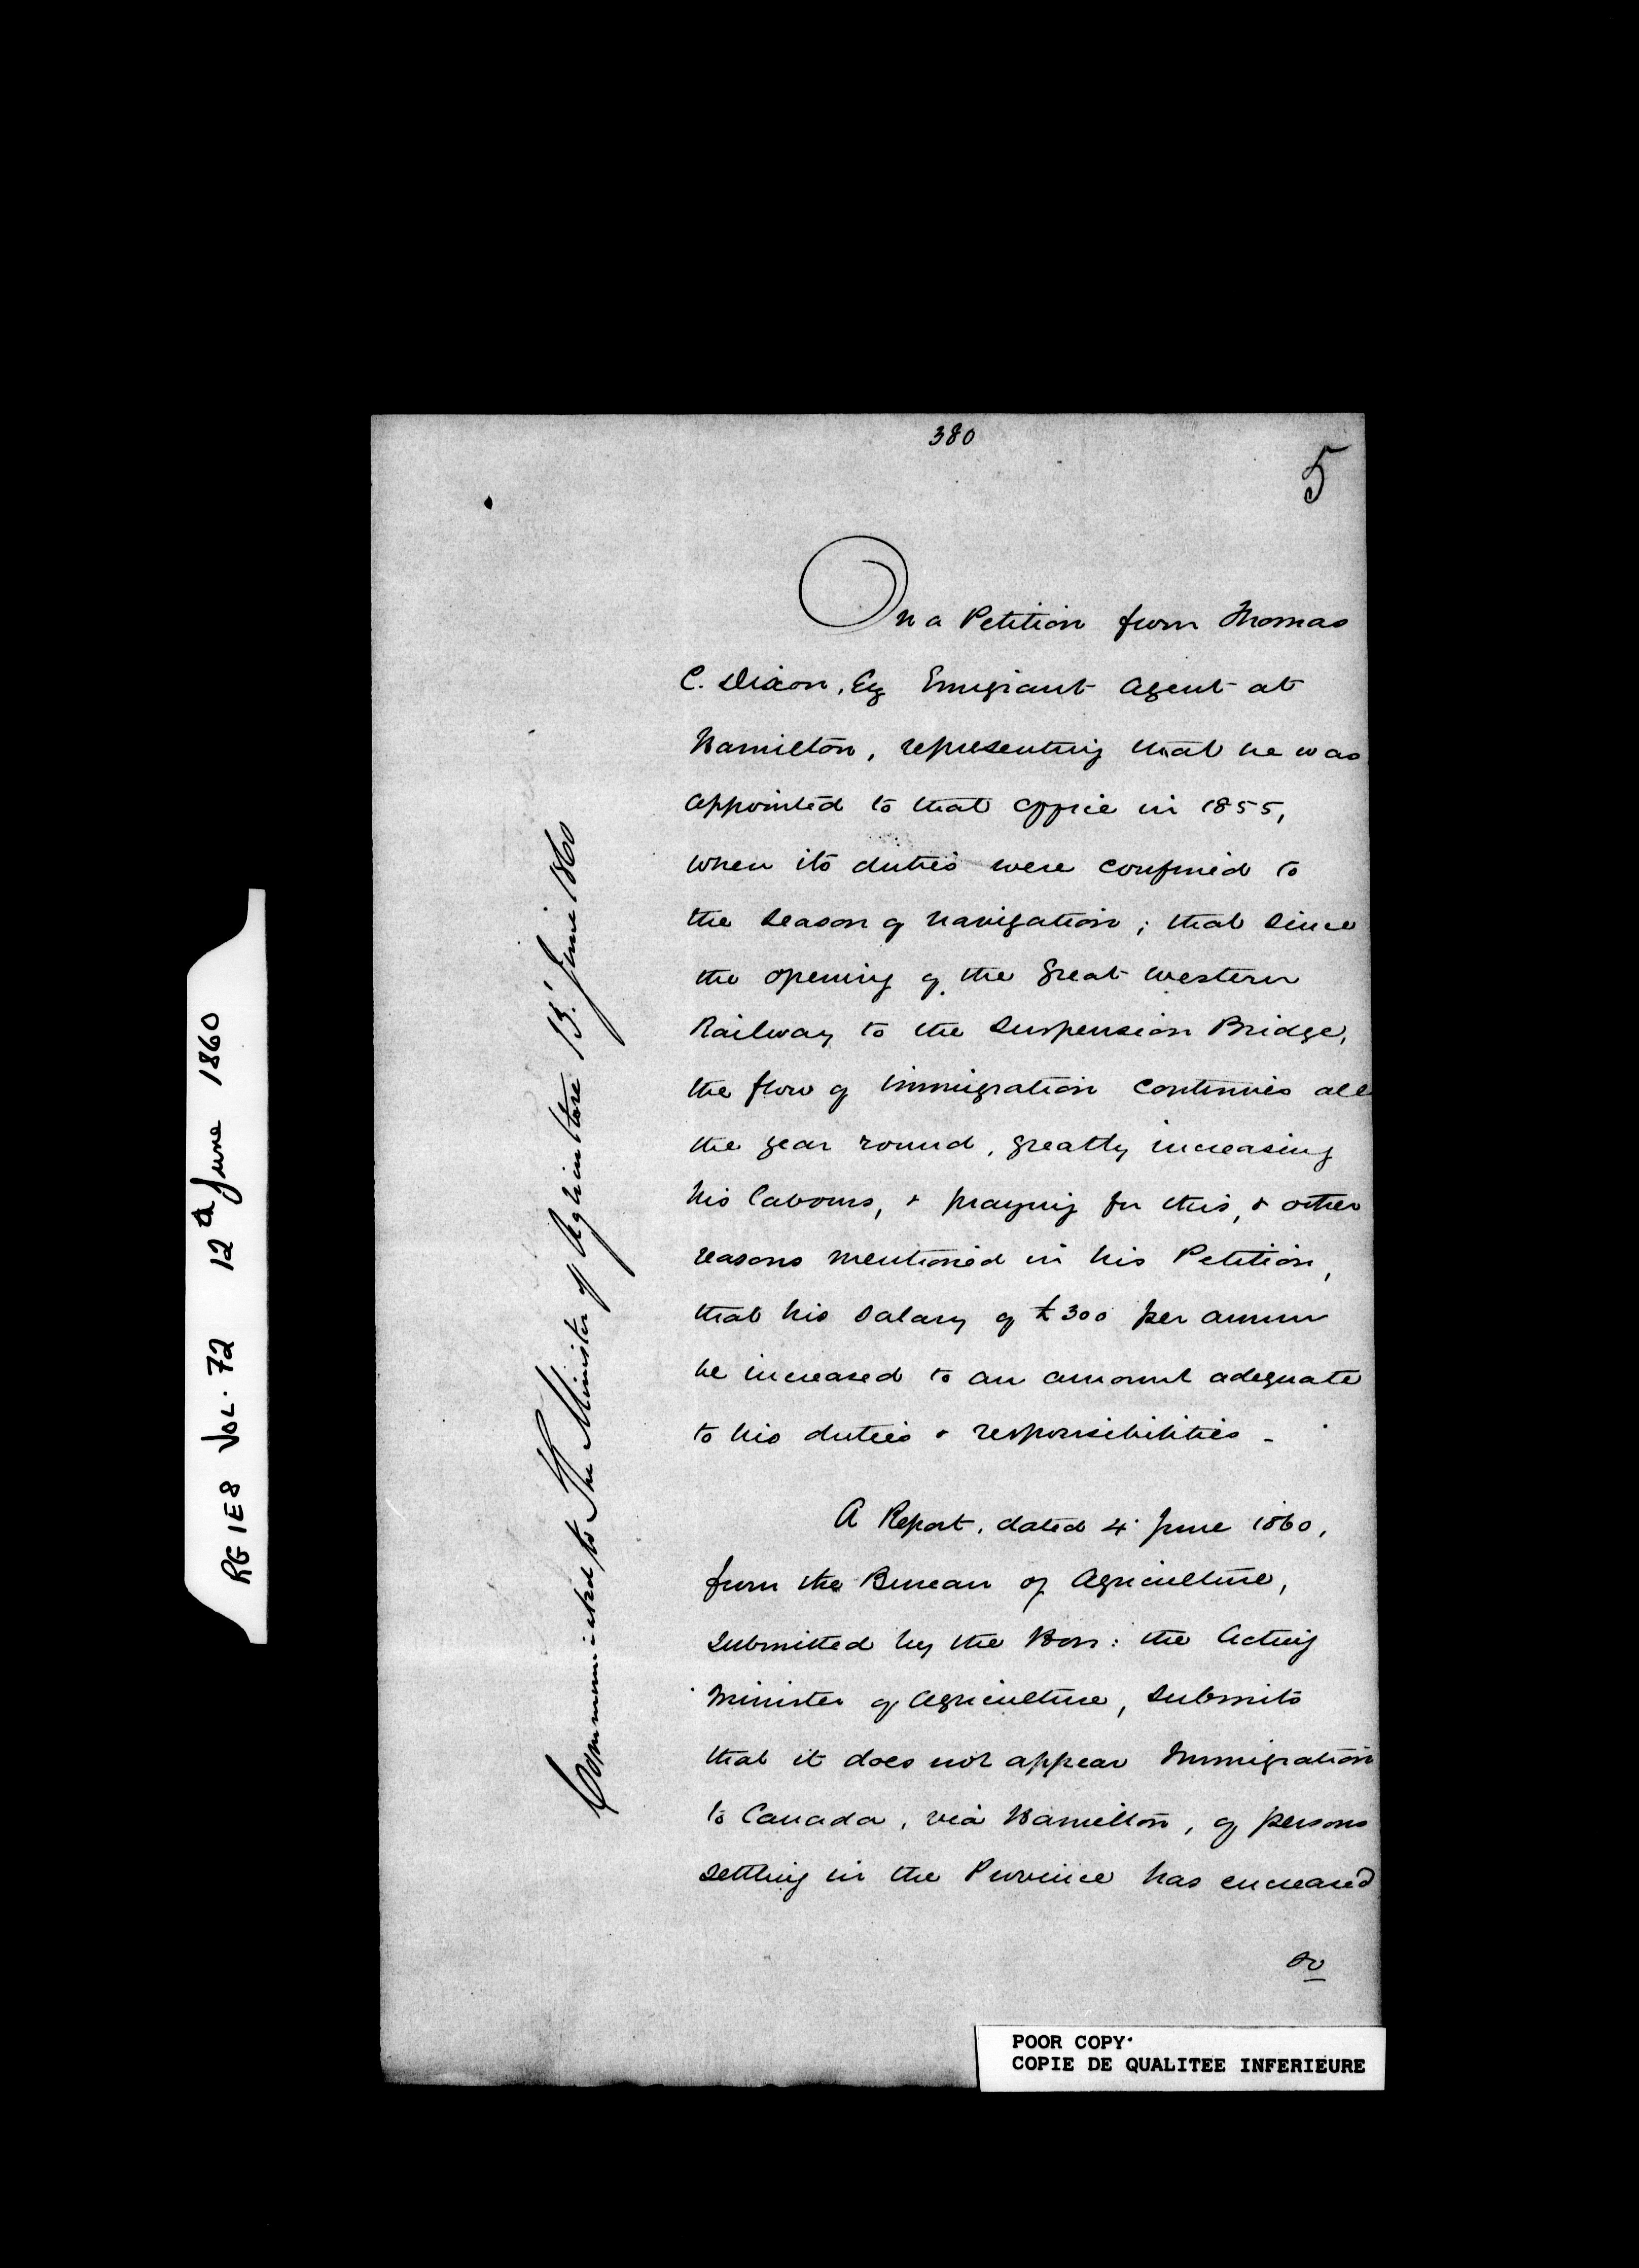 380
5
On a Petition from Thomas
C. Dixon, Esq Emigrant Agent at
Hamilton, representing that he was
appointed to that office in 1855,
when its duties were confined to
the season of navigation; that since
the opening of the Great Western
Railway to the Suspension Bridge,
the flow of immigration continues all
the year round, greatly increasing
his labours, & praying for this, & other
reasons mentioned in his Petition,
that his salary of £300 per annum
be increased to an amount adequate
to his duties & responsibilities -
A Report, dated 4' June 1860,
from the Bureau of Agriculture,
submitted by the Hon: the Acting
Minister of Agriculture, submits
that it does not appear Immigration
to Canada, via Hamilton, of persons
settling in the Province has encreased
so
Communicated to The Minister of Agriculture 13' June 1860
RG 1E8 VOL. 72 12th June 1860
POOR COPY
COPIE DE QUALITEE INFERIEURE